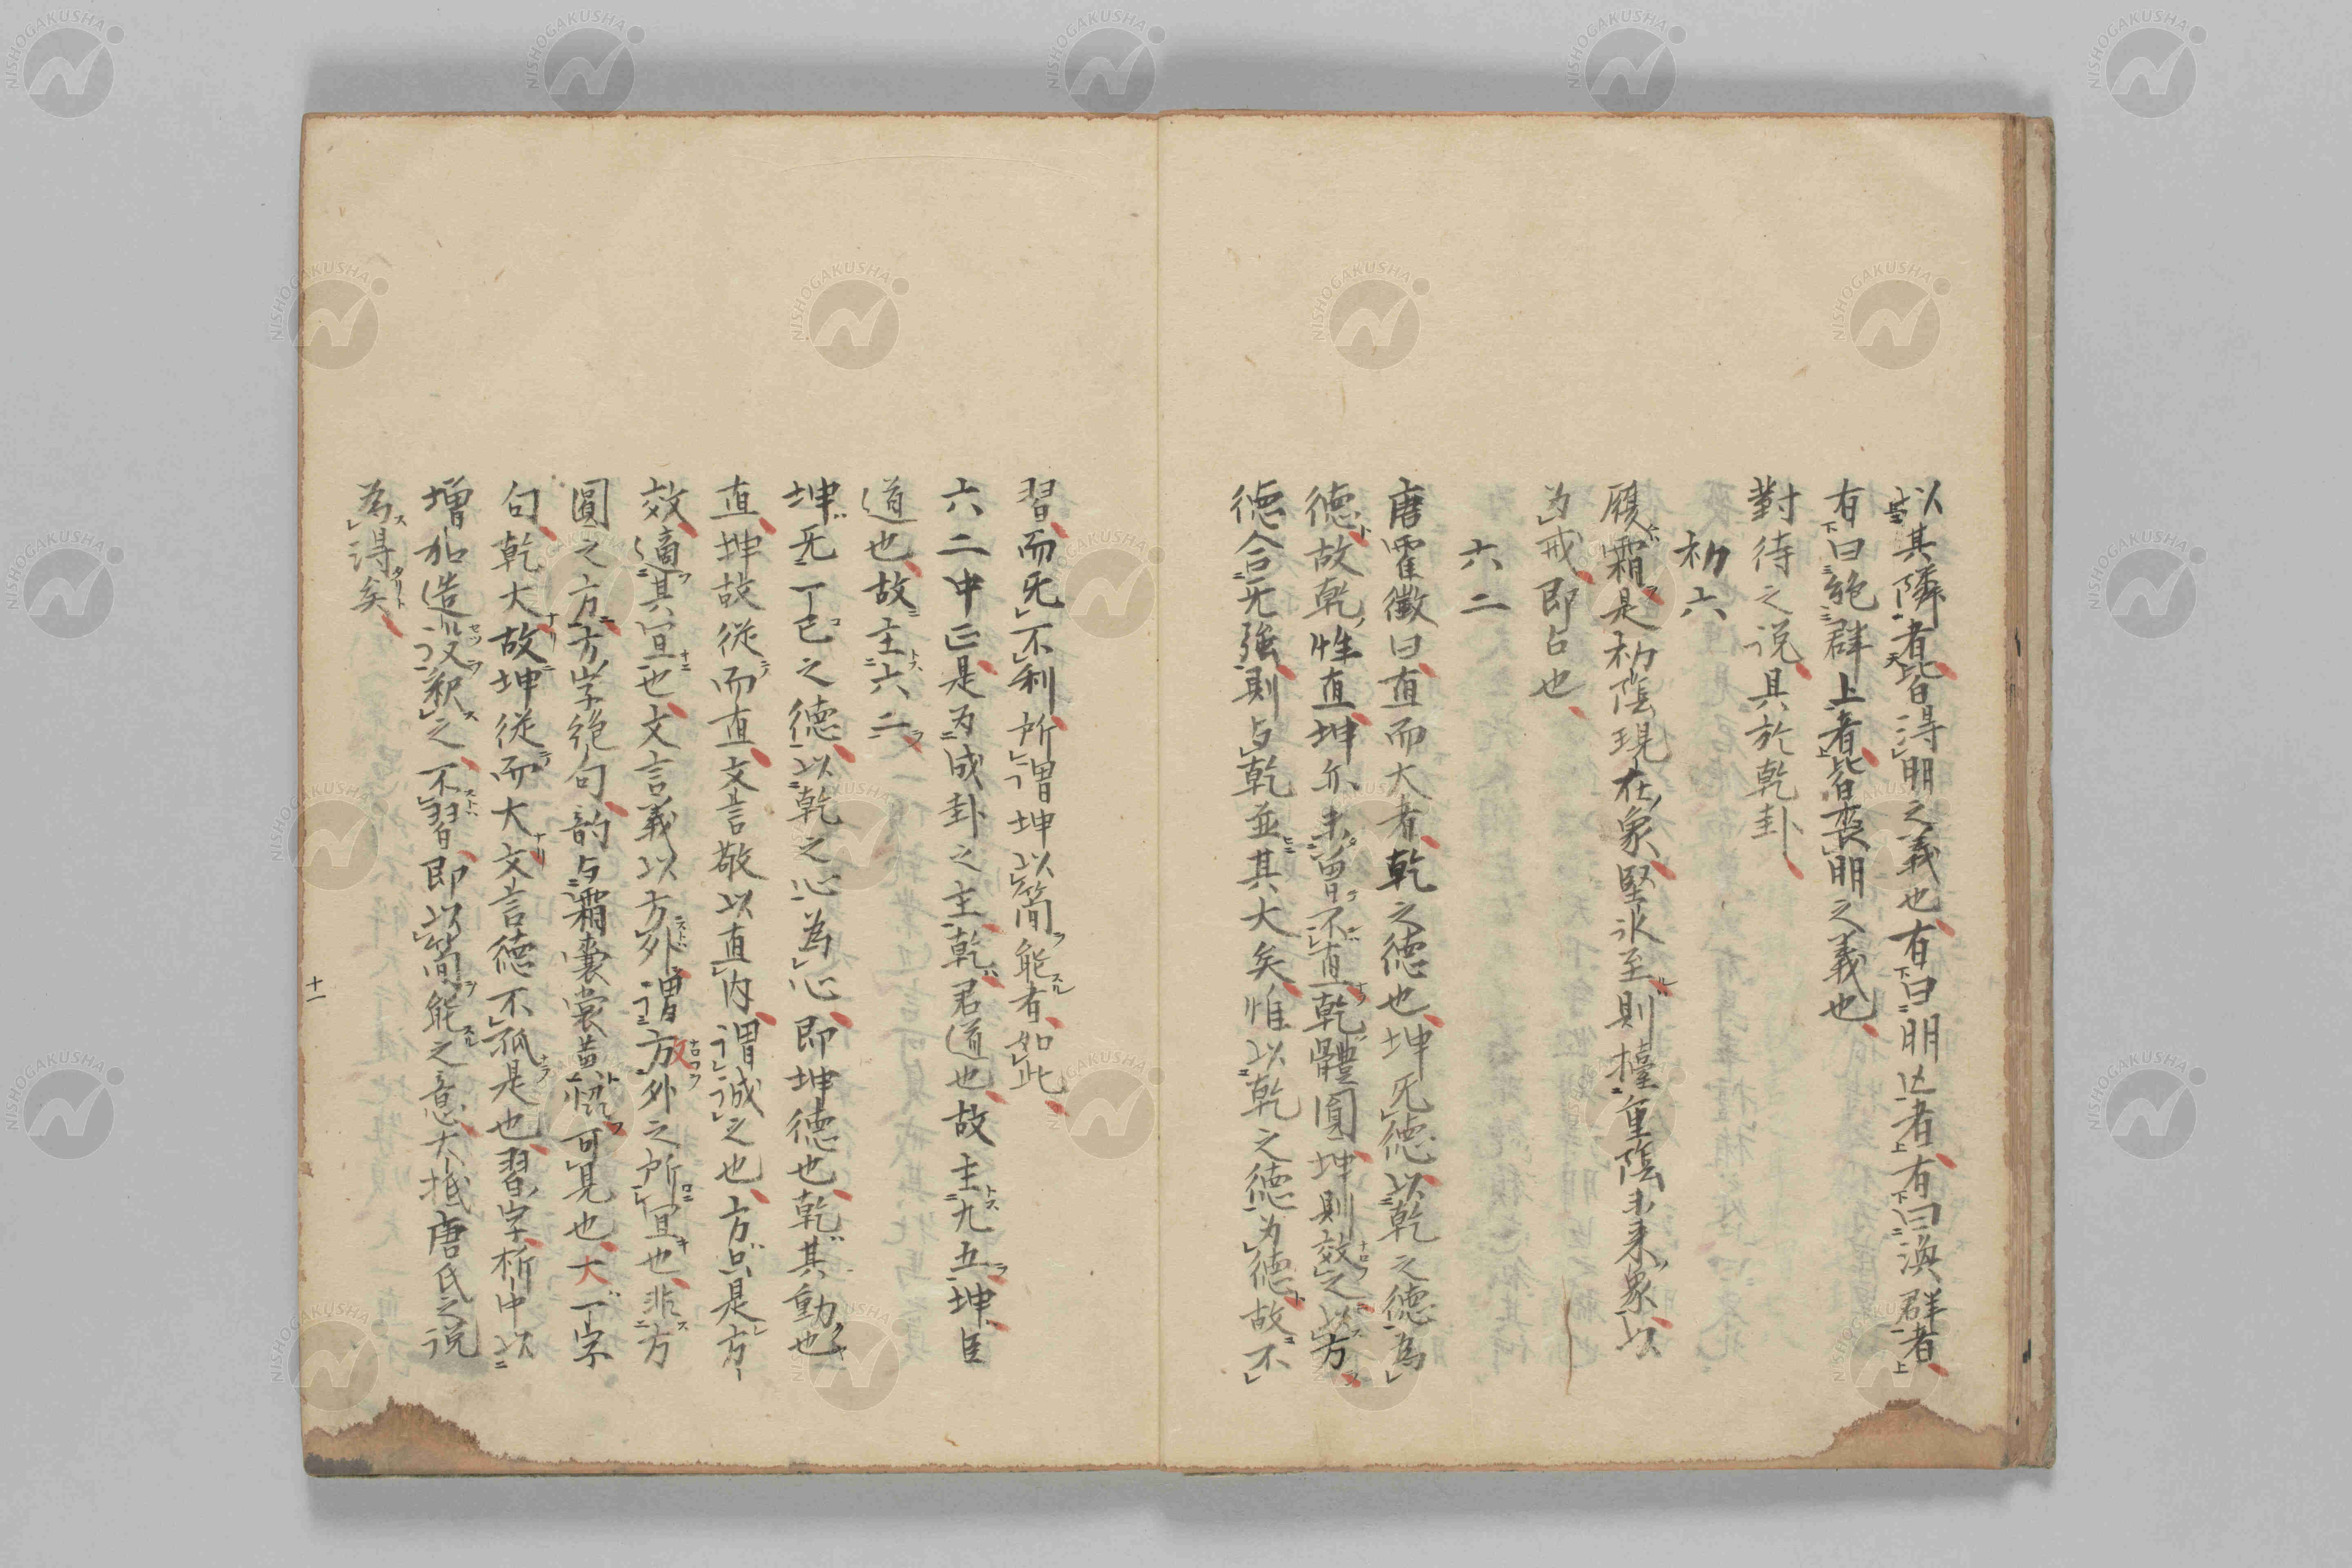 以其隣者皆得明之義也有曰明亾者有曰渙群者
有曰絶群上者皆喪明之義也
對待之説具於乾卦
初六
履霜是初陰現在象堅氷至則擡重陰未来象以
为戒即占也
六二
唐霍徵曰直而大者乾之徳也坤无徳以乾之徳為
徳故乾性直坤亦未曽不直乾體圓坤則效之以方
徳合无强則与乾並其大矣惟以乾之徳为徳故不
習而无不利所謂坤以簡能者如此
六二中正是为成卦之主乾君道也故主九五坤臣
道也故主六二
坤无丁已之徳以乾之心為心即坤徳也乾其動也
直坤故従而直文言敬以直内謂誠之也方只是方
效適其宜也文言義以方外謂方外之所宜也非方
圓之方方字絶句韵与霜嚢裳黄協可見也大一字
句乾大故坤従而大文言徳不孤是也習字析中以
増加造設釈之不習即以簡能之意大抵唐氏之説
為得矣
十一